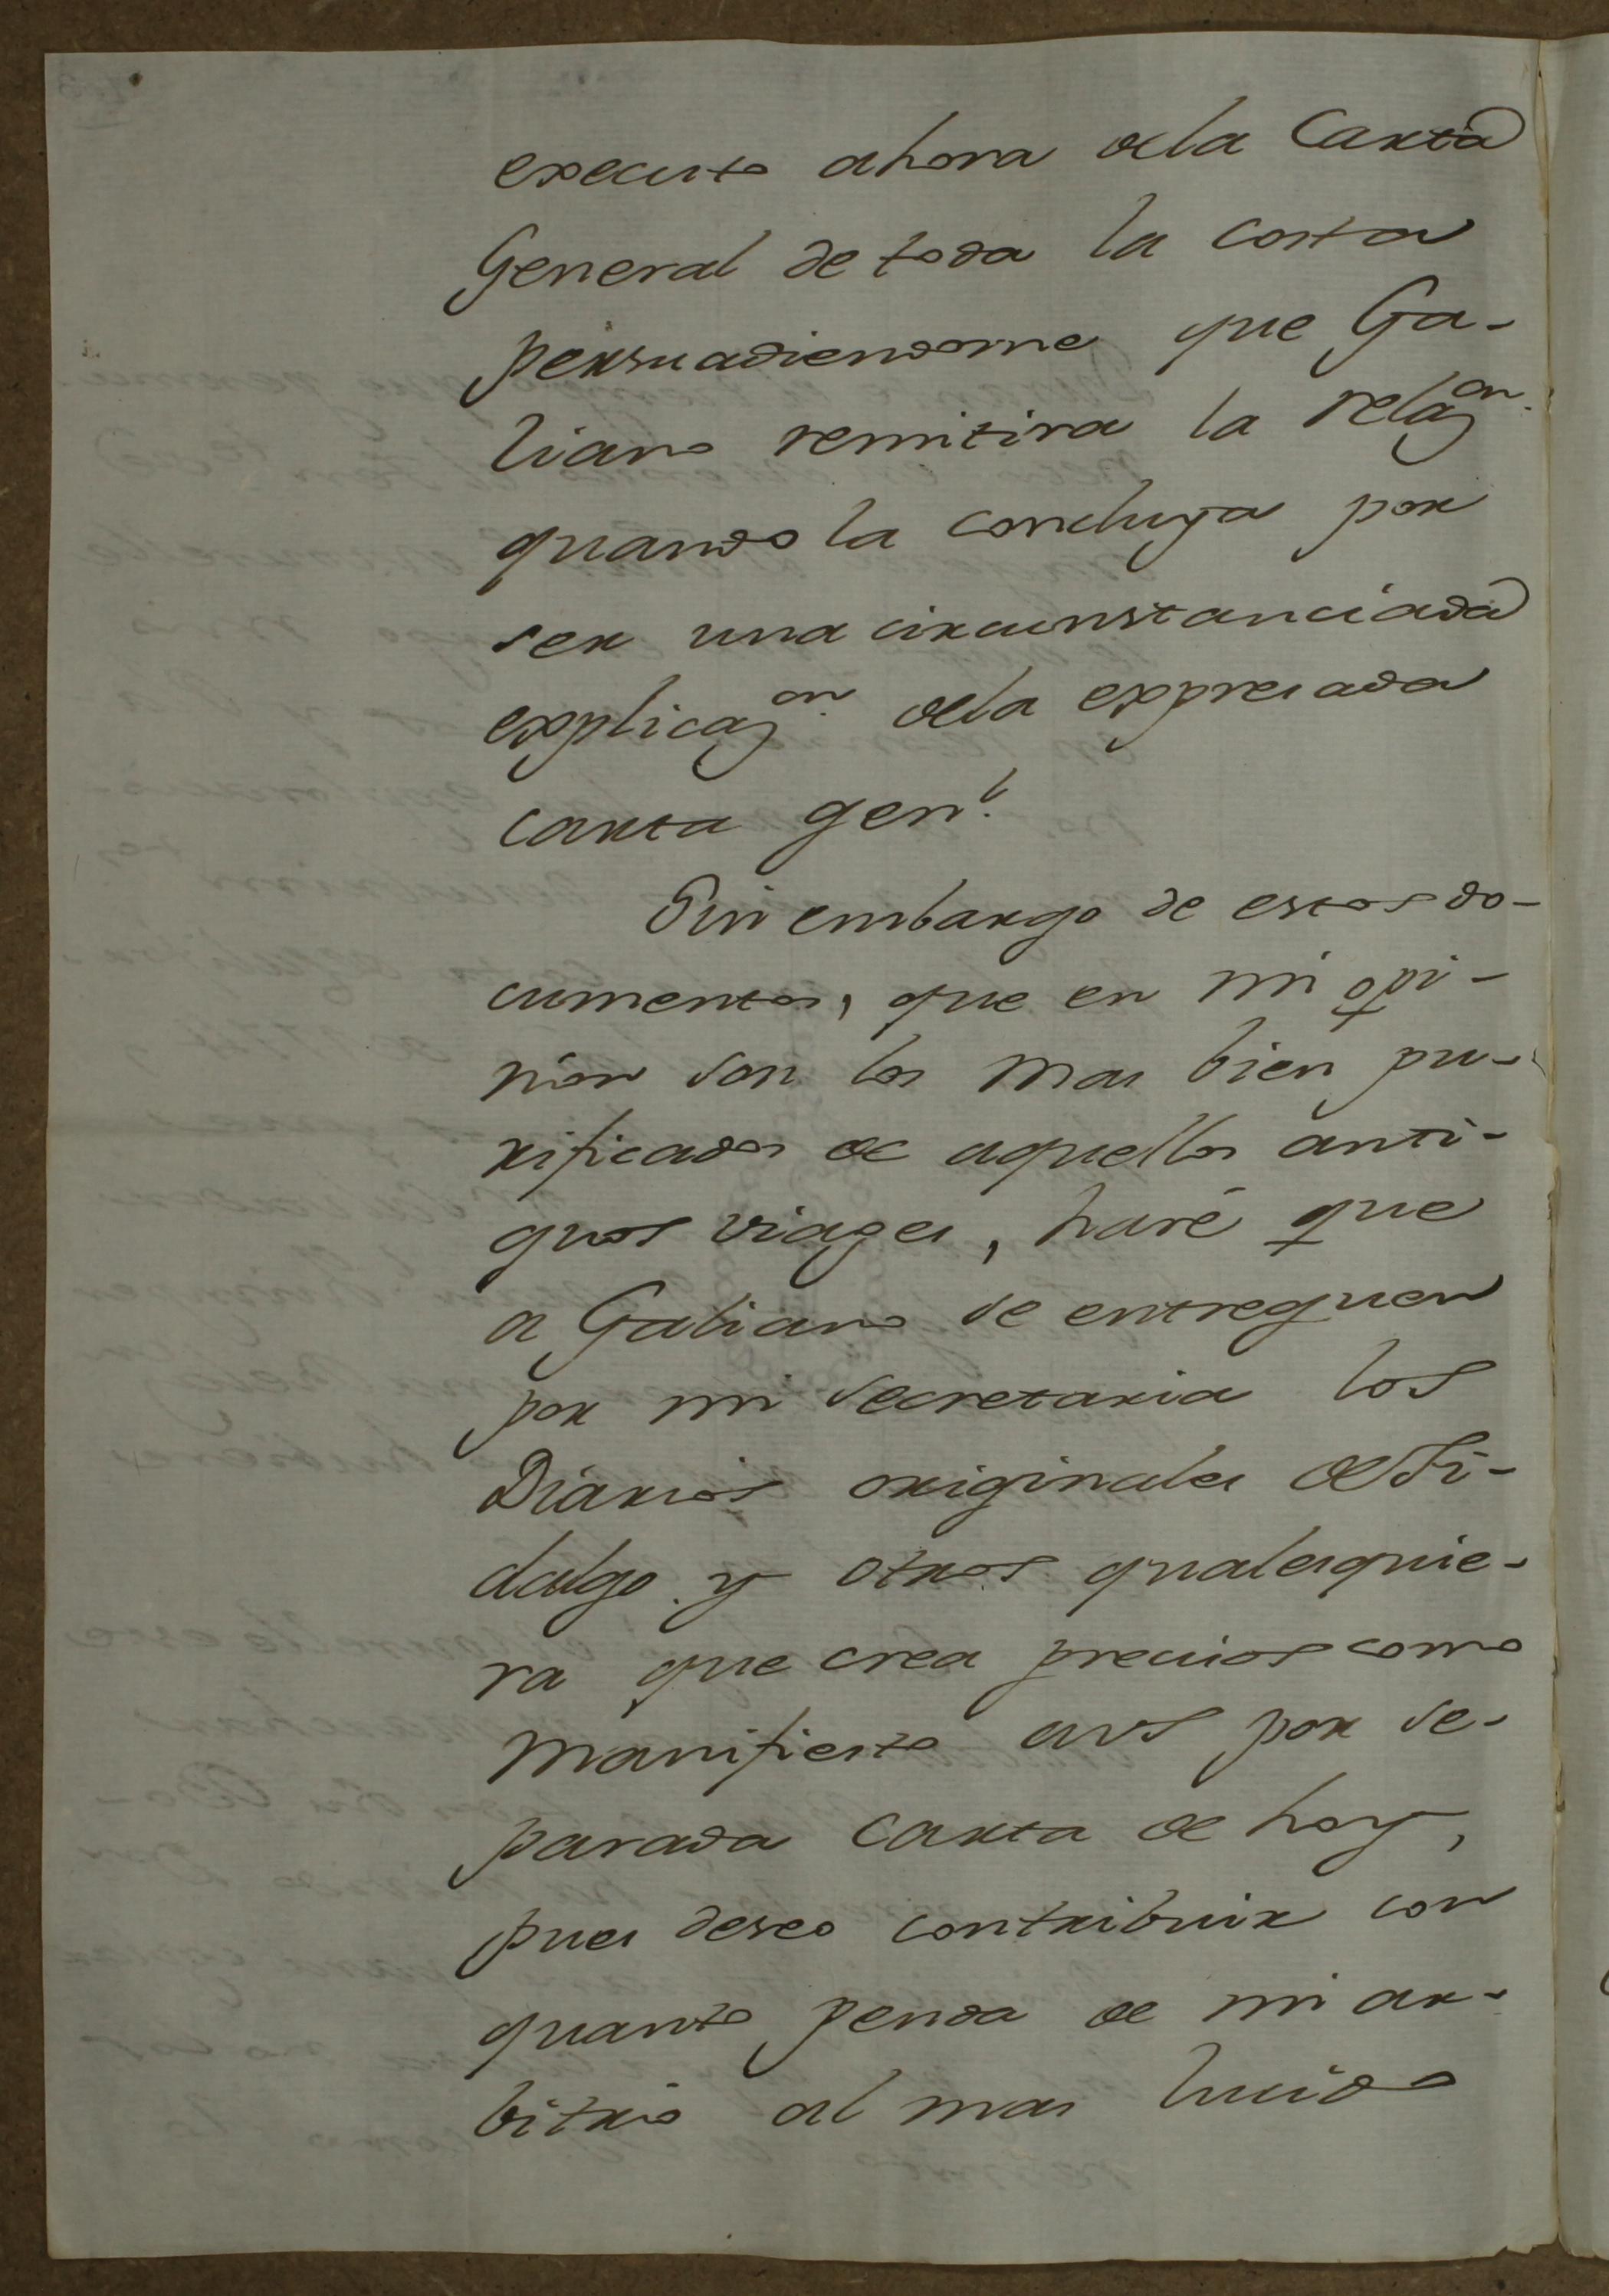 executo ahora dela Carta
General de toda la costa
persuadiendome que Ga-
liano remitira la relaz.on
quando la concluya por
ser una circunstanciada
explicaz.on dela expresada
carta gen.l
Sin embargo de estos do-
cumentos, que en mi opi-
nion son los mas bien pu-
rificados de aquellos anti-
guos viages, haré que
a Galiano se entreguen
por mi secretaria los
Diarios originales de Fi-
dalgo y otros qualesquie-
ra que crea precisos como
manifiesto avs por se-
parada carta de hoy,
pues deseo contribuir con
quanto penda de mi ar-
bitrio al mas lucido